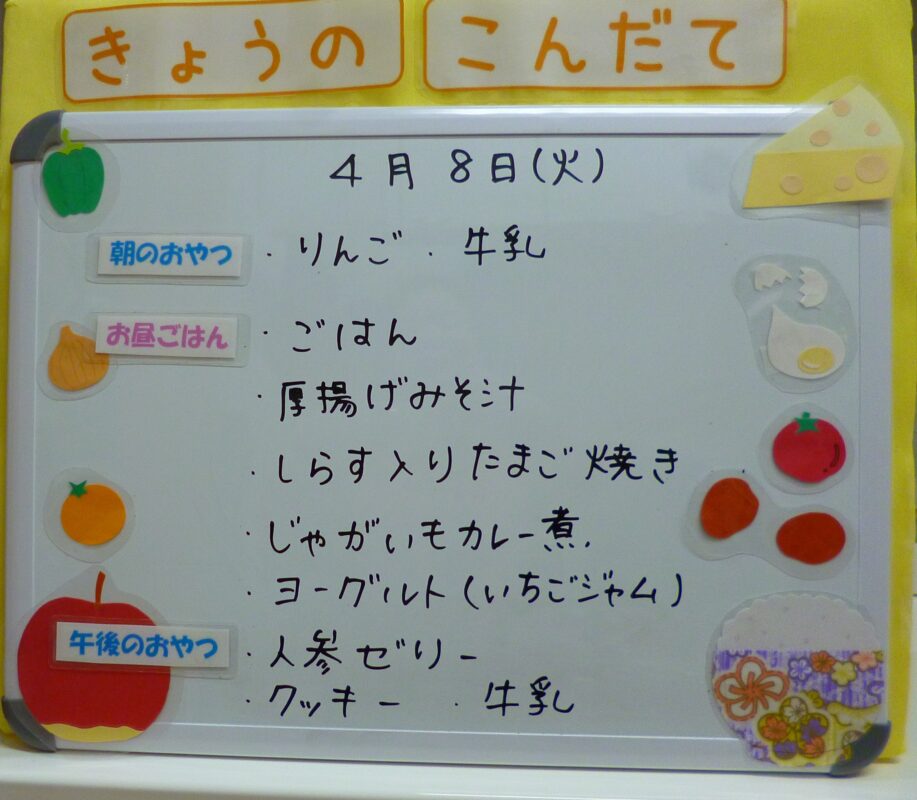 きょうの こんだて
4月 8日(火)
朝のおやつ ・りんご ・牛乳
お昼ごはん ・ごはん
・厚揚げみそ汁
・しらす入りたまご焼き
・じゃがいもカレー煮
・ヨーグルト(いちごジャム)
午後のおやつ ・人参ゼリー
・クッキー ・牛乳